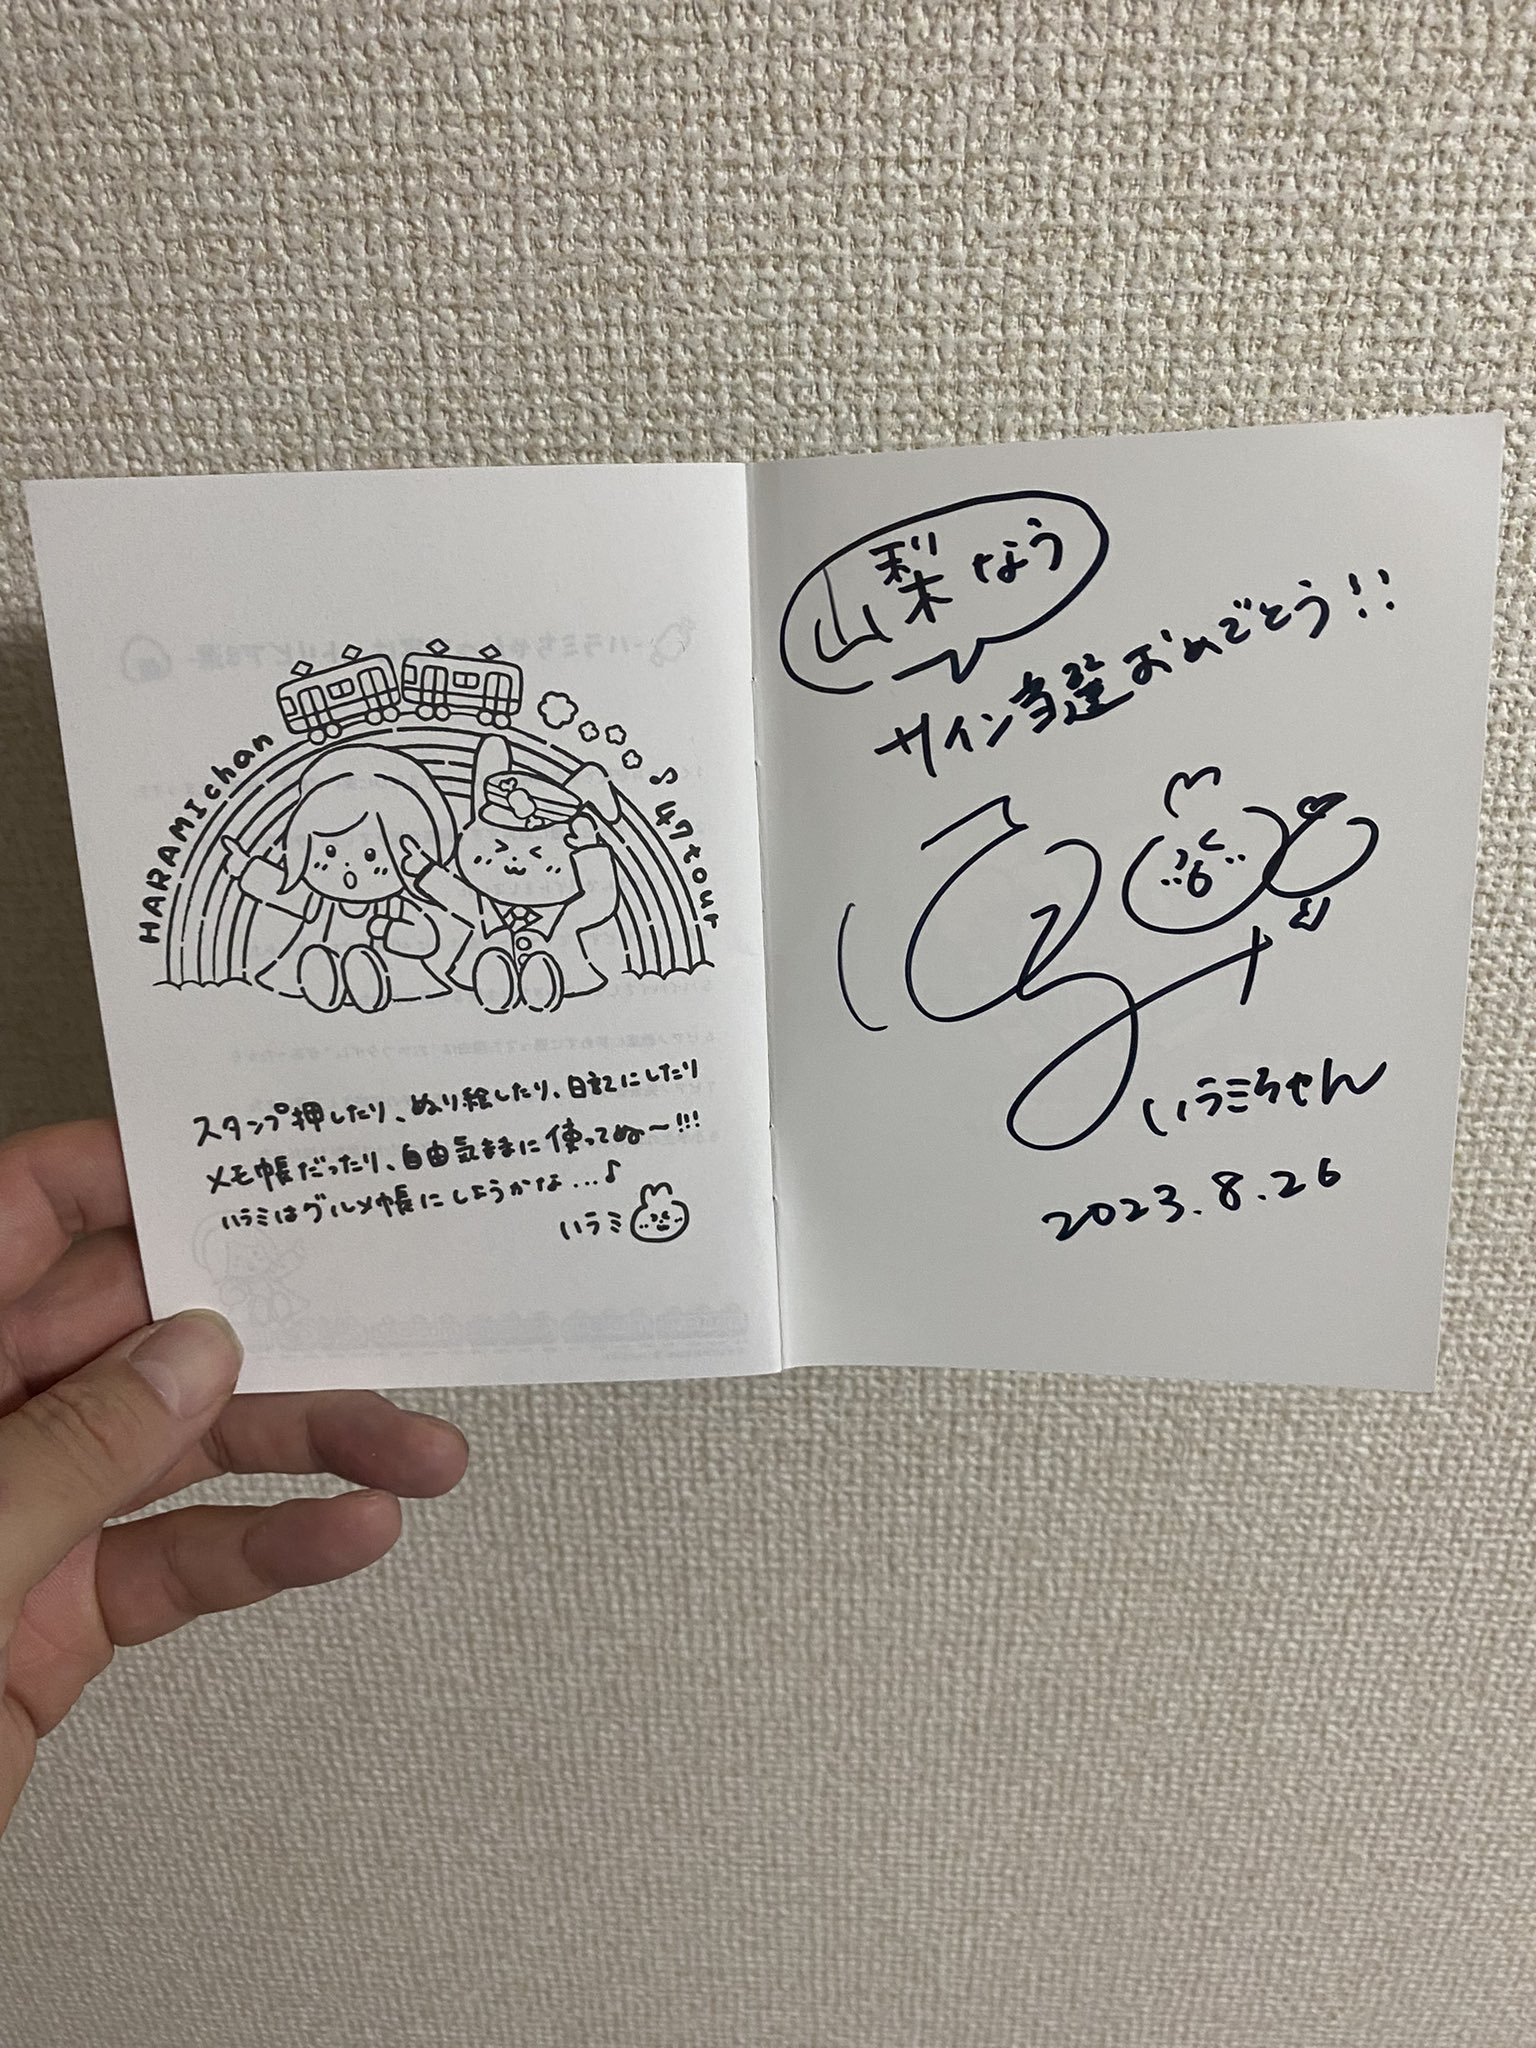 HARAMIchan ♪47tour
スタンプ押したり、ぬり絵したり、日記にしたり
メモ帳だったり、自由気ままに使ってぬ〜!!!
ハラミはグルメ帳にしようかな...♪
ハラミ
山梨なう
サイン当選おめでとう!!
ハラミちゃん
2023.8.26